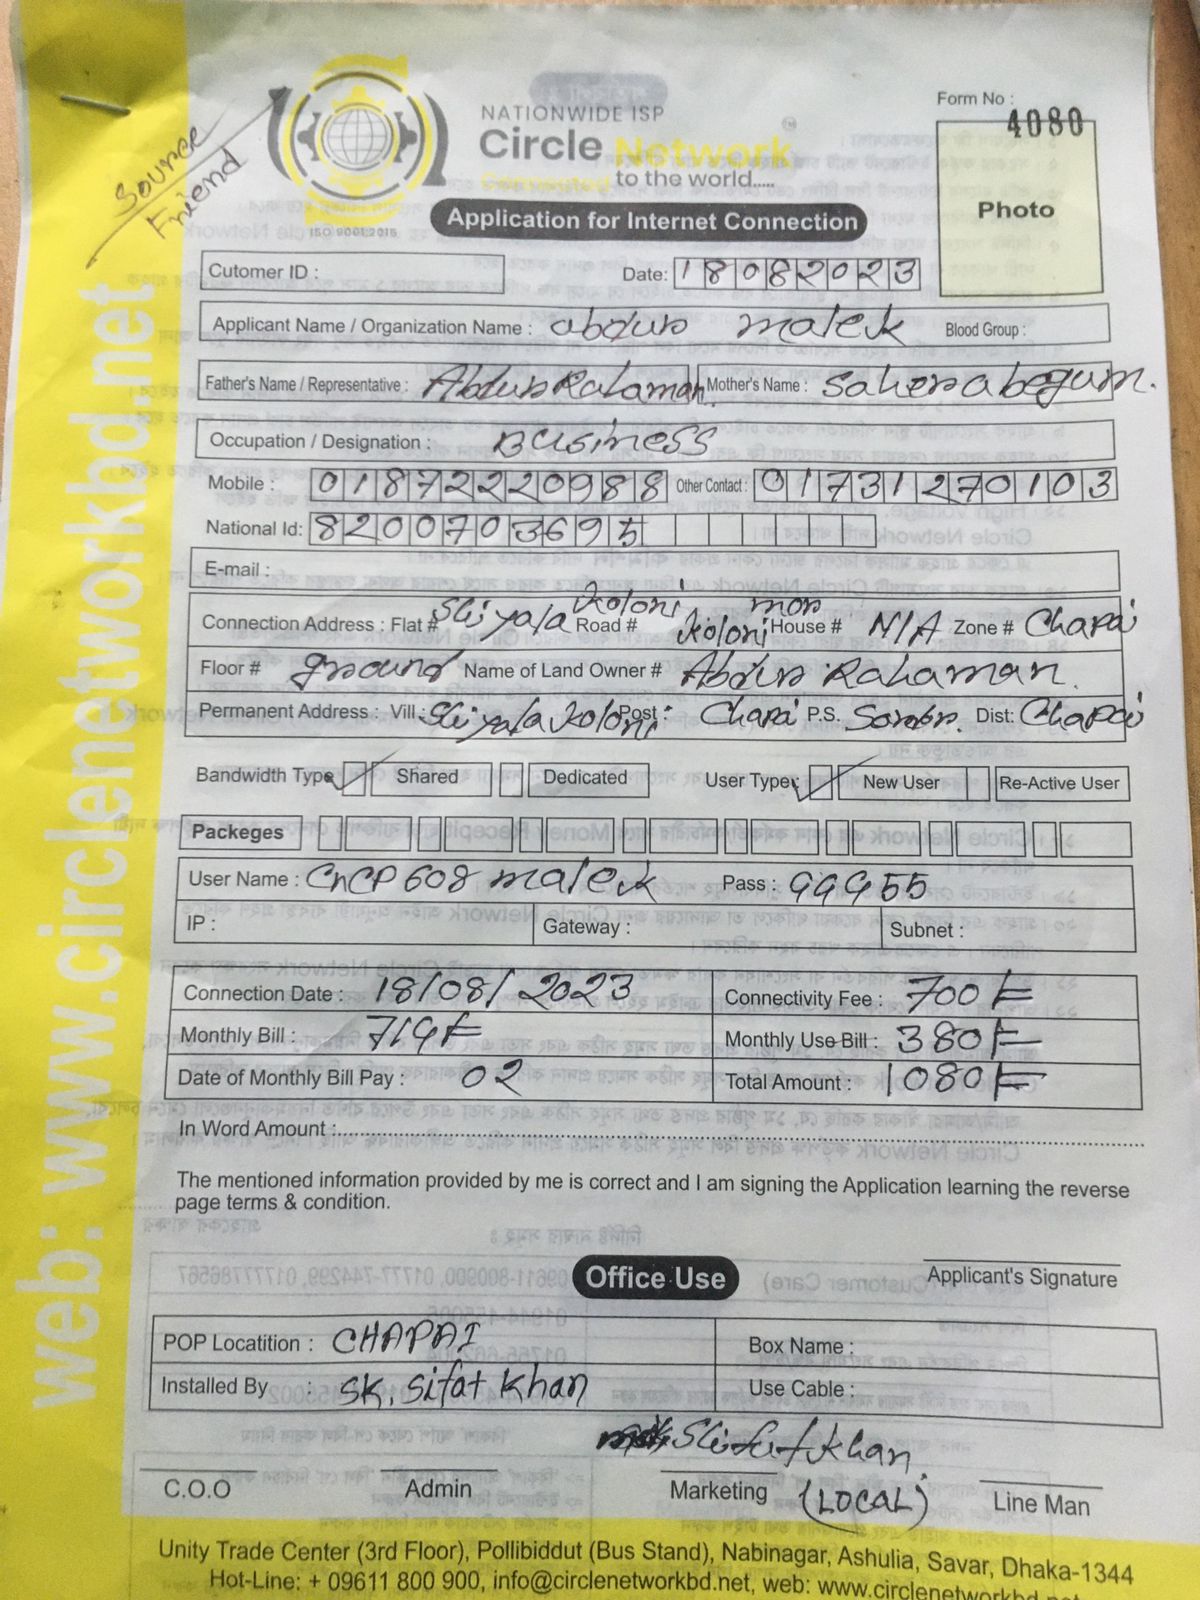 web: www.circlenetworkbd.net
Source
Friend
ISO 9001:2015
NATIONWIDE ISP
Circle Network
Connected to the world.....
Form No : 4080
Photo
Application for Internet Connection
Cutomer ID :
Date: 18082023
Applicant Name / Organization Name : abdur malek Blood Group :
Father's Name / Representative : Abdur Rahaman Mother's Name : Sahera begum.
Occupation / Designation : Business
Mobile : 01872220988 Other Contact : 01731270103
National Id: 8200703695
E-mail :
Connection Address : Flat # Shiyala Koloni Road # Koloni mor House # N/A Zone # Chapai
Floor # ground Name of Land Owner # Abdur Rahaman.
Permanent Address : Vill : Shiyala Koloni Post : Chapai P.S. Sador. Dist: Chapai
Bandwidth Type Shared Dedicated User Type: New User Re-Active User
Packeges
User Name : CnCP608 malek Pass : 99955
IP : Gateway : Subnet :
Connection Date : 18/08/2023 Connectivity Fee : 700/=
Monthly Bill : 719/= Monthly Use Bill : 380/=
Date of Monthly Bill Pay : 02 Total Amount : 1080/=
In Word Amount :
The mentioned information provided by me is correct and I am signing the Application learning the reverse
page terms & condition.
Applicant's Signature
Office Use
POP Locatition : CHAPAI Box Name :
Installed By : SK. Sifat Khan Use Cable :
Shifat Khan.
C.O.O Admin Marketing (LOCAL) Line Man
Unity Trade Center (3rd Floor), Pollibiddut (Bus Stand), Nabinagar, Ashulia, Savar, Dhaka-1344
Hot-Line: + 09611 800 900, info@circlenetworkbd.net, web: www.circlenetworkbd.net